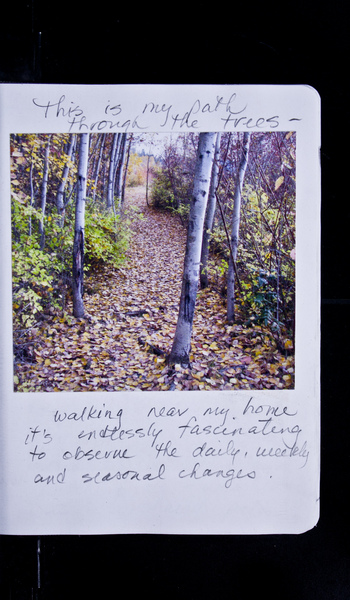 This is my path
through the trees –
walking near my home
it's endlessly fascinating
to observe the daily, weekly
and seasonal changes.